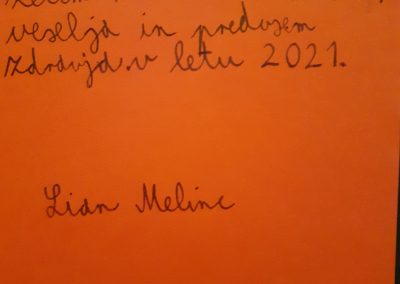 veselja in predvsem
zdravja v letu 2021.
Lian Melinc